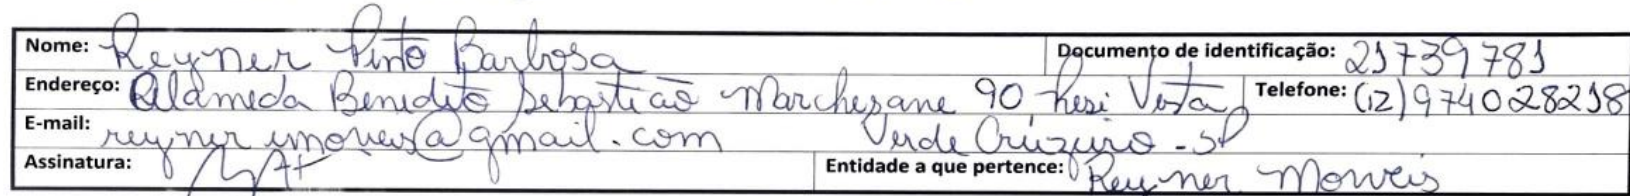 Nome: Reyner Pinto Barbosa Documento de identificação: 21739781
Endereço: Alameda Benedito Sebastião Marchesane 90 Resi Vista Telefone: (12) 974028218
E-mail: reyner imoveis@gmail.com Verde Cruzeiro - SP
Assinatura: Entidade a que pertence: Reyner